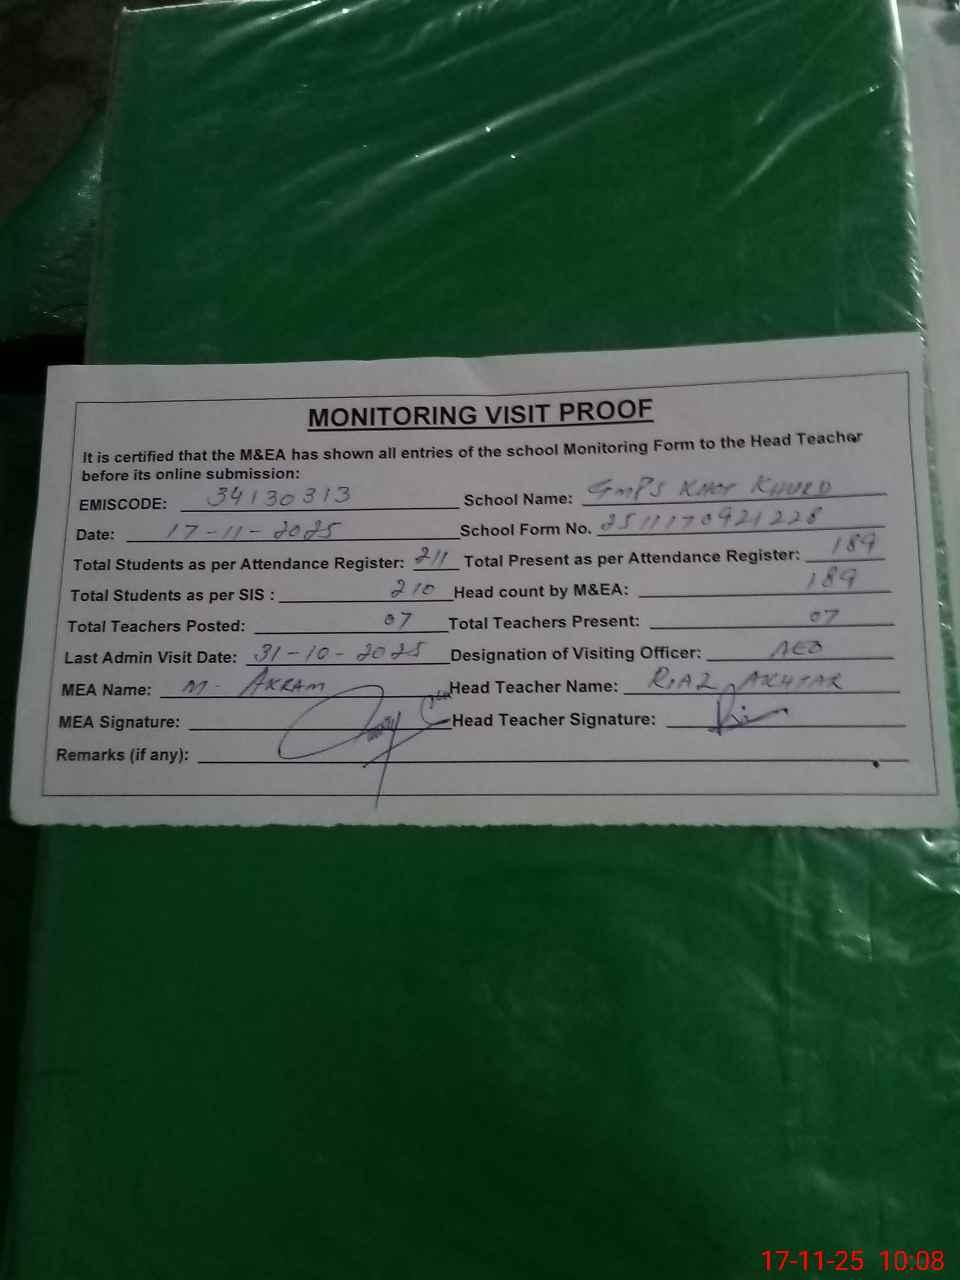 MONITORING VISIT PROOF
It is certified that the M&EA has shown all entries of the school Monitoring Form to the Head Teacher
before its online submission:
EMISCODE: 34130313 School Name: GMPS KHOT KHURD
Date: 17-11-2025 School Form No. 2511170921228
Total Students as per Attendance Register: 211 Total Present as per Attendance Register: 189
Total Students as per SIS : 210 Head count by M&EA: 189
Total Teachers Posted: 07 Total Teachers Present: 07
Last Admin Visit Date: 31-10-2025 Designation of Visiting Officer: AEO
MEA Name: M. AKRAM Head Teacher Name: RIAZ AKHTAR
MEA Signature: Head Teacher Signature:
Remarks (if any):
17-11-25 10:08